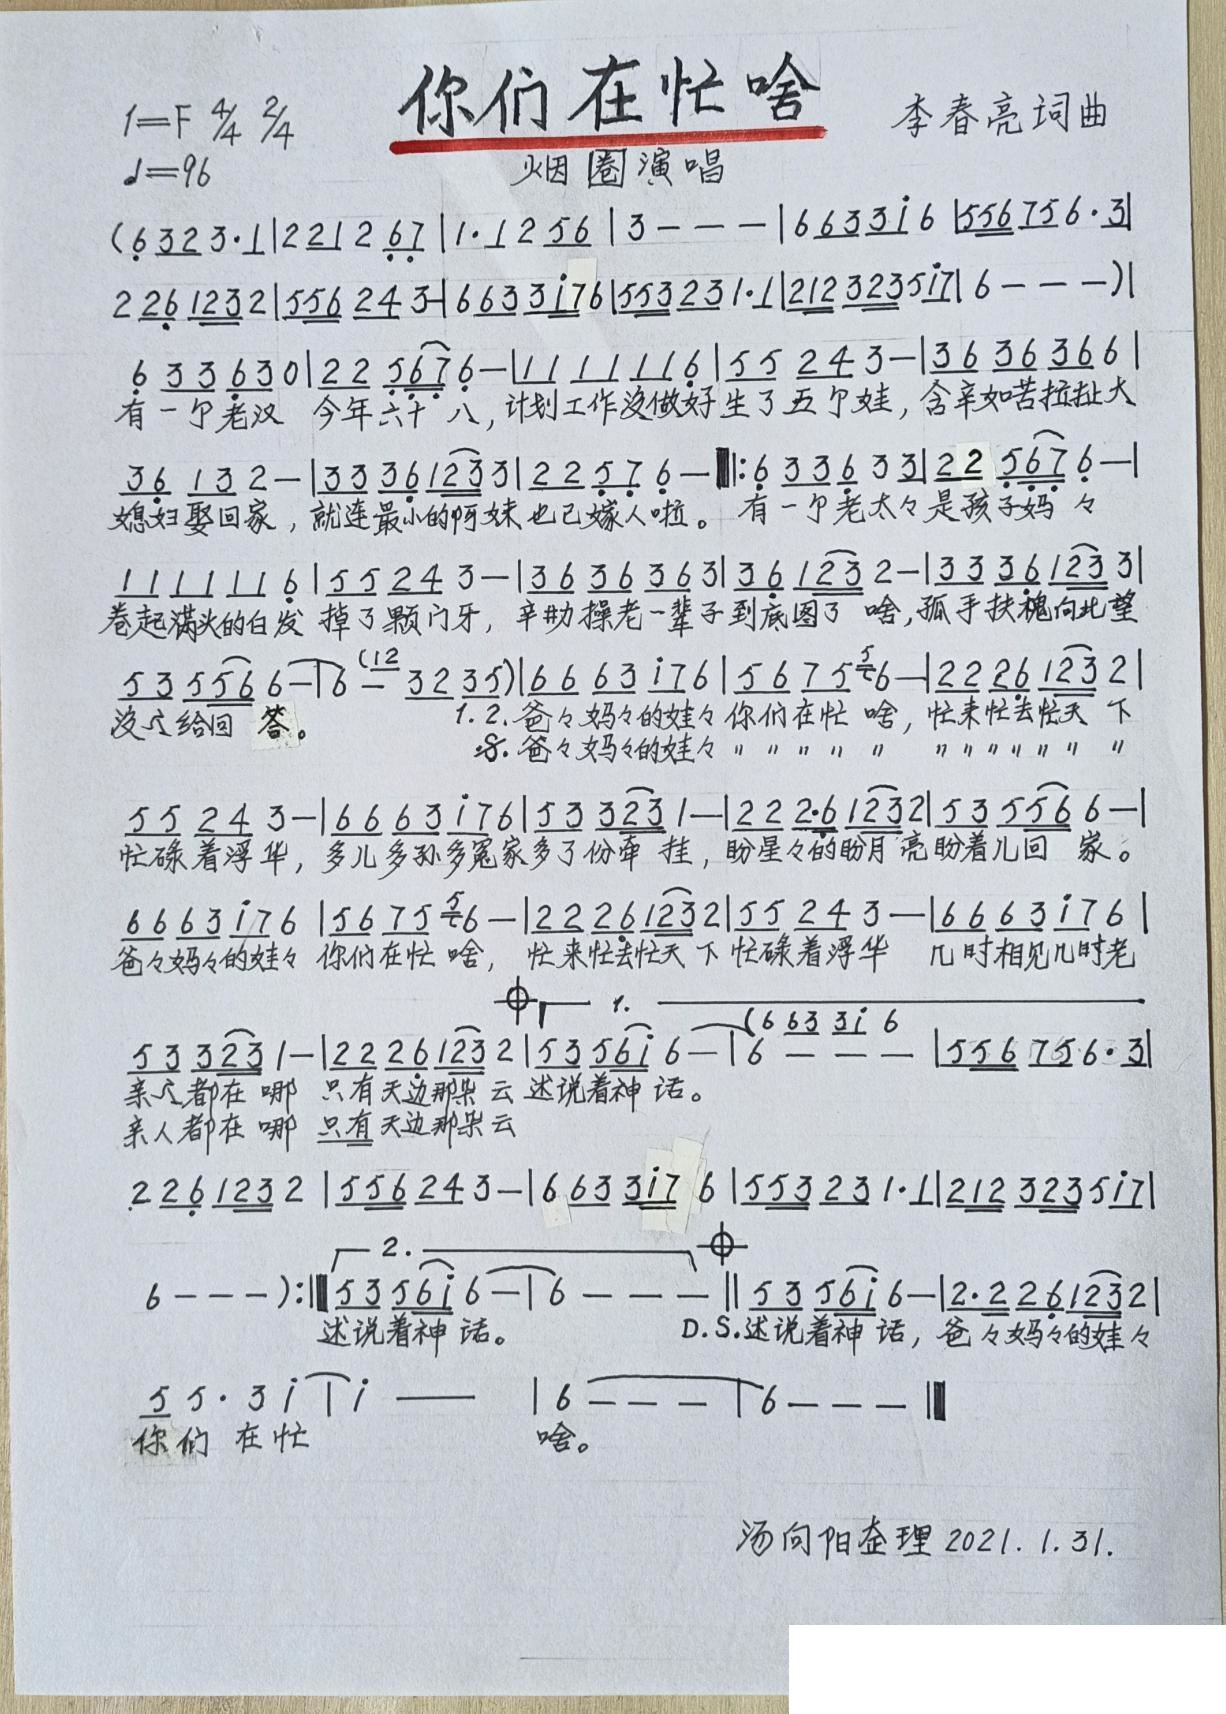 你们在忙啥
1=F 4/4 2/4
李春亮词曲
♩=96
烟圈演唱
(6 3 2 3·1|2 2 1 2 6 7|1·1 2 5 6|3 - - -|6 6 3 3 i 6|5 5 6 7 5 6·3|
2 2 6 1 2 3 2|5 5 6 2 4 3-|6 6 3 3 i 7 6|5 5 3 2 3 1·1|2 1 2 3 2 3 5 i 7|6 - - -)|
6 3 3 6 3 0|2 2 5 6 7 6-|1 1 1 1 1 1 6|5 5 2 4 3-|3 6 3 6 3 6 6|
有一个老汉 今年六十八,计划工作没做好生了五个娃,含辛如苦拉扯大
3 6 1 3 2-|3 3 3 6 1 2 3 3|2 2 5 7 6-‖:6 3 3 6 3 3|2 2 5 6 7 6-|
媳妇娶回家,就连最小的阿妹也已嫁人啦。有一个老太々是孩子妈々
1 1 1 1 1 1 6|5 5 2 4 3-|3 6 3 6 3 6 3|3 6 1 2 3 2-|3 3 3 6 1 2 3 3|
卷起满头的白发掉了颗门牙,辛勤操老一辈子到底图了啥,孤手扶槐向北望
5 3 5 5 6 6-|6 - (1 2 3 2 3 5)|6 6 6 3 i 7 6|5 6 7 5 5 6-|2 2 2 6 1 2 3 2|
没个给回答。 1. 2. 爸々妈々的娃々你们在忙啥,忙来忙去忙天下
𝄋. 爸々妈々的娃々 〃 〃 〃 〃 〃 〃 〃 〃 〃 〃 〃 〃
5 5 2 4 3-|6 6 6 3 i 7 6|5 3 3 2 3 1-|2 2 2·6 1 2 3 2|5 3 5 5 6 6-|
忙碌着浮华,多儿多孙多冤家多了份牵挂,盼星々的盼月亮盼着儿回家。
6 6 6 3 i 7 6|5 6 7 5 5 6-|2 2 2 6 1 2 3 2|5 5 2 4 3-|6 6 6 3 i 7 6|
爸々妈々的娃々 你们在忙啥,忙来忙去忙天下忙碌着浮华 几时相见几时老
1.
(6 6 3 3 i 6
5 3 3 2 3 1-|2 2 2 6 1 2 3 2|5 3 5 6 i 6-|6 - - -|5 5 6 7 5 6·3|
亲个都在哪 只有天边那朵云述说着神话。
亲人都在哪 只有天边那朵云
2 2 6 1 2 3 2|5 5 6 2 4 3-|6 6 3 3 i 7 6|5 5 3 2 3 1·1|2 1 2 3 2 3 5 i 7|
2.
6 - - -):‖5 3 5 6 i 6-|6 - - -‖5 3 5 6 i 6-|2·2 2 6 1 2 3 2|
述说着神话。 D.S.述说着神话,爸々妈々的娃々
5 5·3 i|i —— |6 - - -|6 - - -‖
你们在忙 啥。
汤向阳查理 2021.1.31.